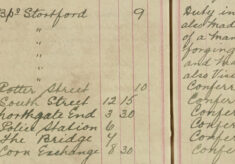 Bps Stortford 9
"
"
"
Potter Street 10
South Street 12 15
Northgate End 3 30
Police Station 6
The Bridge 4
Corn Exchange 8 30
Duty in
also mad
of a man
forging
and
also
Conferr
Confer
Confer
Confer
Confer
Confer